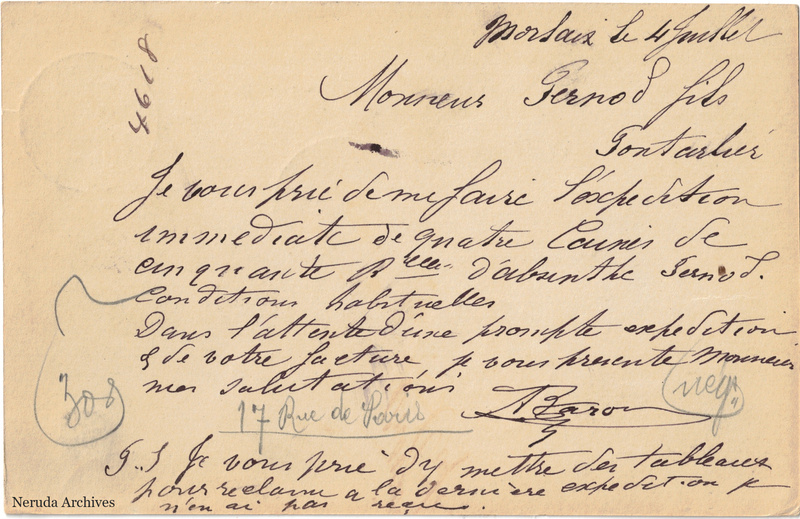 Morlaix le 4 Juillet
4618
Monsieur Pernod fils
Pontarlier
Je vous prié de me faire l'expedition
immediate de quatre Caisses de
cinquante Blles d'absinthe Pernod.
Conditions habituelles
Dans l'attente d'une prompte expedition
& de votre facture je vous presente Monsieur
mes salutations
308
17 Rue de Paris
A Baron
neg
P.S Je vous prié d'y mettre des tableaux
pour reclame a la dernière expedition je
n'en ai pas reçu.
Neruda Archives